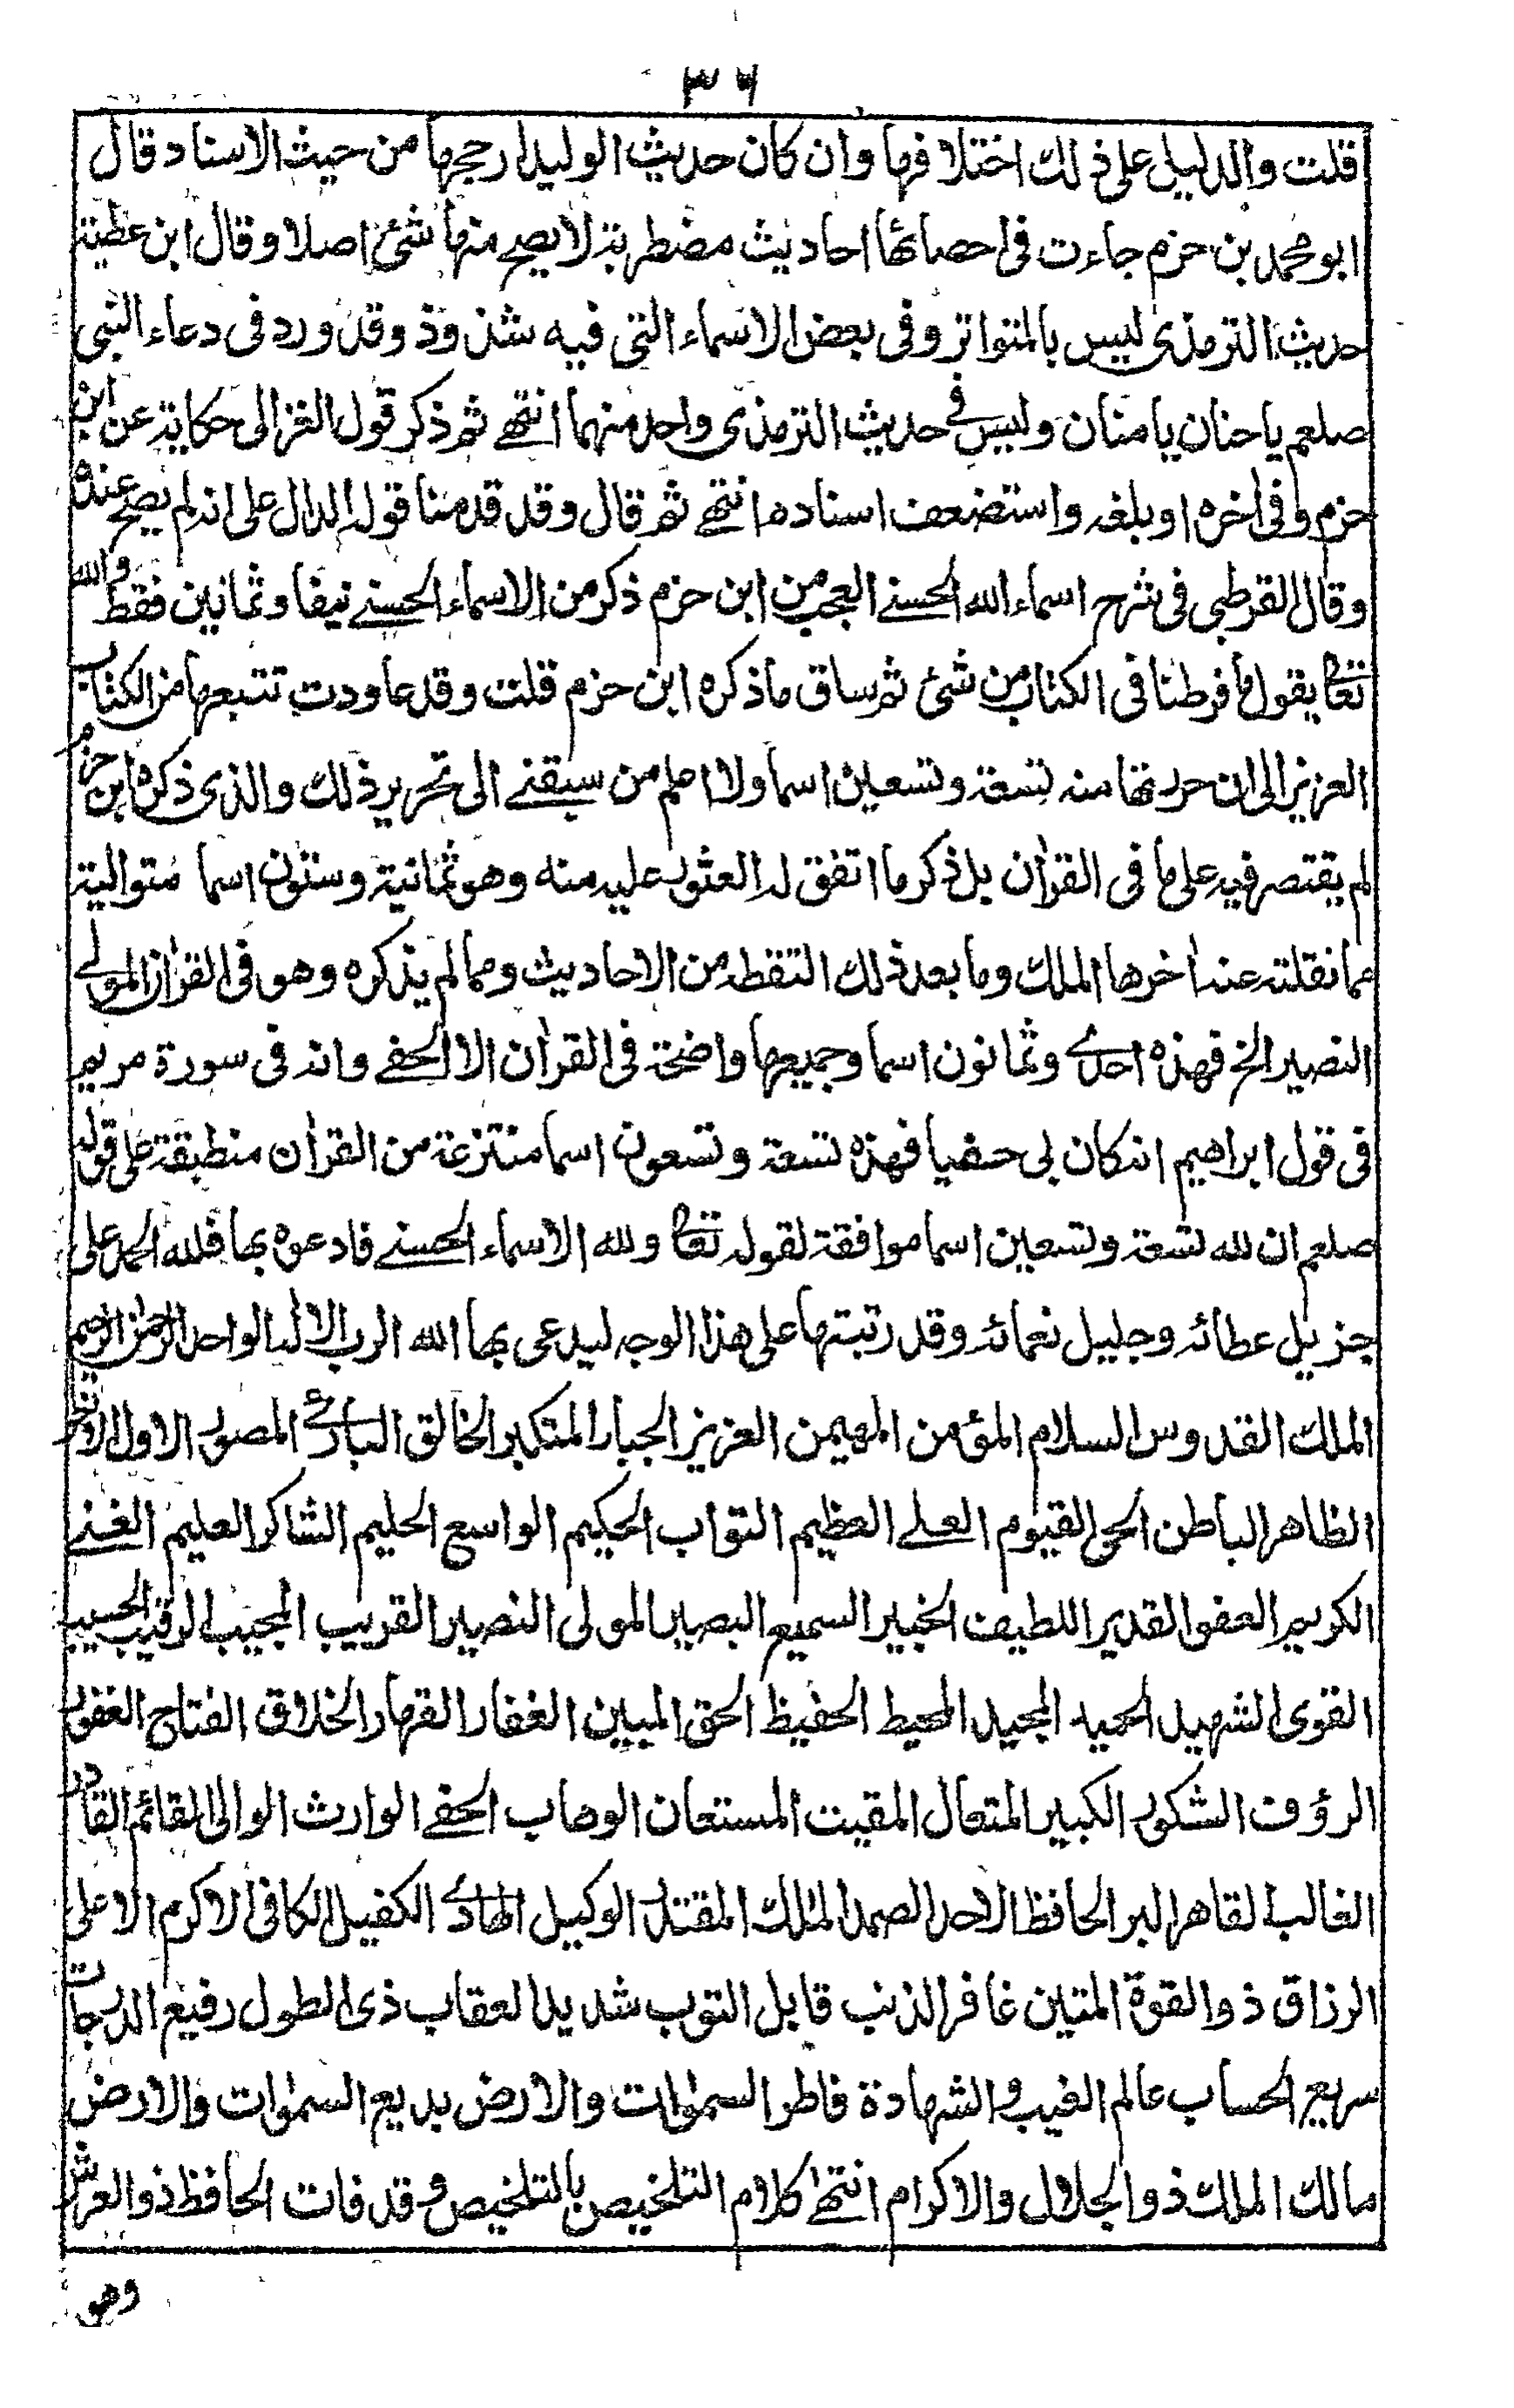 ٣٦
قلت والدليل على ذلك اختلافها وان كان حديث الوليد ارجحها من حيث الاسناد قال
ابو محمد بن حزم جاءت فى احصائها احاديث مضطربة لا يصح منها شئ اصلا وقال ابن عطية
حديث الترمذى ليس بالمتواتر وفى بعض الاسماء التى فيه شذوذ وقد ورد فى دعاء النبى
صلعم يا حنان يا منان وليس فى حديث الترمذى واحد منهما انتهى ثم ذكر قول الغزالى حكاية عن ابن
حزم وفى اخره او بلغه واستضعف اسناده انتهى ثم قال وقد قدمنا قوله الدال على انه لم يصح عنده
وقال القرطبى فى شرح اسماء الله الحسنى العجب من ابن حزم ذكر من الاسماء الحسنى نيفا وثمانين فقط والله
تعالى يقول ما فرطنا فى الكتاب من شئ ثم ساق ما ذكره ابن حزم قلت وقد عاودت تتبعها من الكتاب
العزيز الى ان حررتها منه تسعة وتسعين اسما ولا اعلم من سبقنى الى تحرير ذلك والذى ذكره ابن حزم
لم يقتصر فيه على ما فى القرآن بل ذكر ما اتفق له العثور عليه منه وهو ثمانية وستون اسما متوالية
مما نقلته عنه اخرها الملك وما بعد ذلك التقطه من الاحاديث ومما لم يذكره وهو فى القرآن المولى
النصير الخ فهذه احدى وثمانون اسما وجميعها واضحة فى القرآن الا الحفى وانه فى سورة مريم
فى قول ابراهيم انه كان بى حفيا فهذه تسعة وتسعون اسما منتزعة من القرآن منطبقة على قوله
صلعم ان لله تسعة وتسعين اسما موافقة لقوله تعالى ولله الاسماء الحسنى فادعوه بها فلله الحمد على
جزيل عطائه وجليل نعمائه وقد رتبتها على هذا الوجه ليدعى بها الله الرب الاله الواحد الرحمن الرحيم
الملك القدوس السلام المؤمن المهيمن العزيز الجبار المتكبر الخالق البارئ المصور الاول الاخر
الظاهر الباطن الحى القيوم العلى العظيم التواب الحكيم الواسع الحليم الشاكر العليم الغنى
الكريم العفو القدير اللطيف الخبير السميع البصير المولى النصير القريب المجيب الرقيب الحسيب
القوى الشهيد الحميد المجيد المحيط الحفيظ الحق المبين الغفار القهار الخلاق الفتاح الغفور
الرؤف الشكور الكبير المتعال المقيت المستعان الوهاب الحفى الوارث الوالى القائم القادر
الغالب القاهر البر الحافظ الاحد الصمد الملك المقتدر الوكيل الهادى الكفيل الكافى الاكرم الاعلى
الرزاق ذو القوة المتين غافر الذنب قابل التوب شديد العقاب ذى الطول رفيع الدرجات
سريع الحساب عالم الغيب والشهادة فاطر السموات والارض بديع السموات والارض
مالك الملك ذو الجلال والاكرام انتهى كلام التلخيص بالتلخيص وقد فات الحافظ ذو العرش
وهو